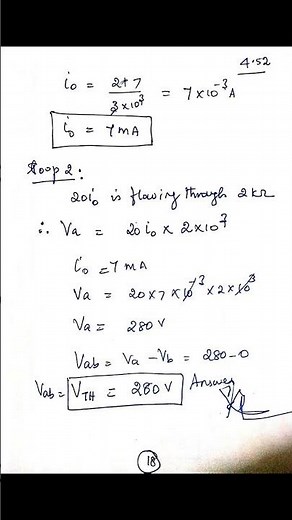 4.52
i₀ = 2+7 / 3×10³ = 7×10⁻³ A
i₀ = 7 mA
Loop 2:
20i₀ is flowing through 2kΩ
∴ Va = 20 i₀ × 2×10³
i₀ = 7 mA
Va = 20×7×10⁻³×2×10³
Va = 280 V
Vab = Va - Vb = 280-0
Vab = V_TH = 280 V Answer
18